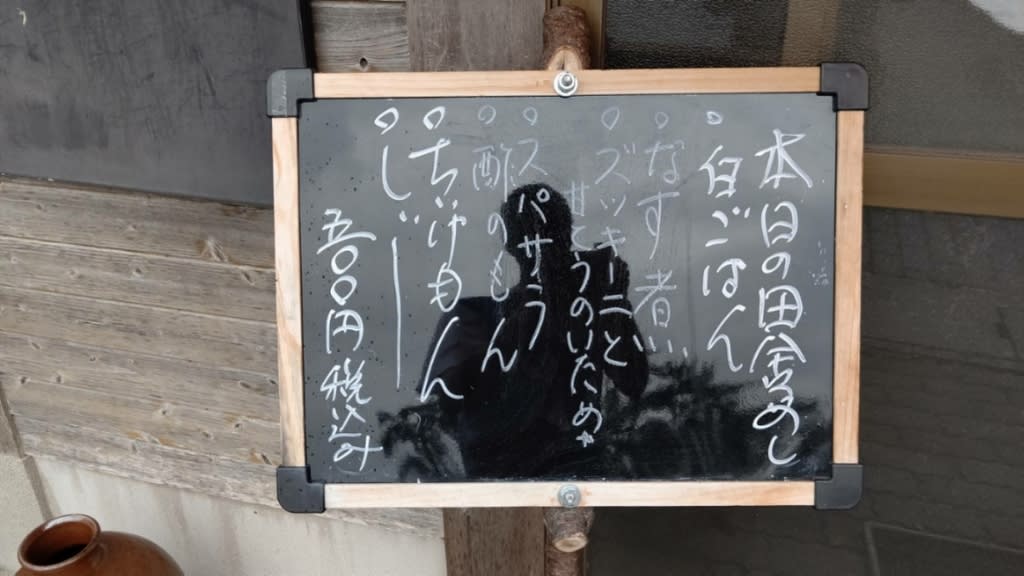 本日の田舎めし
○白ごはん
○なす煮
○ズッキーニと
甘とうのいため
○スパサラ
○酢のもん
○ちけもん
○しじー
五〇〇円税込み